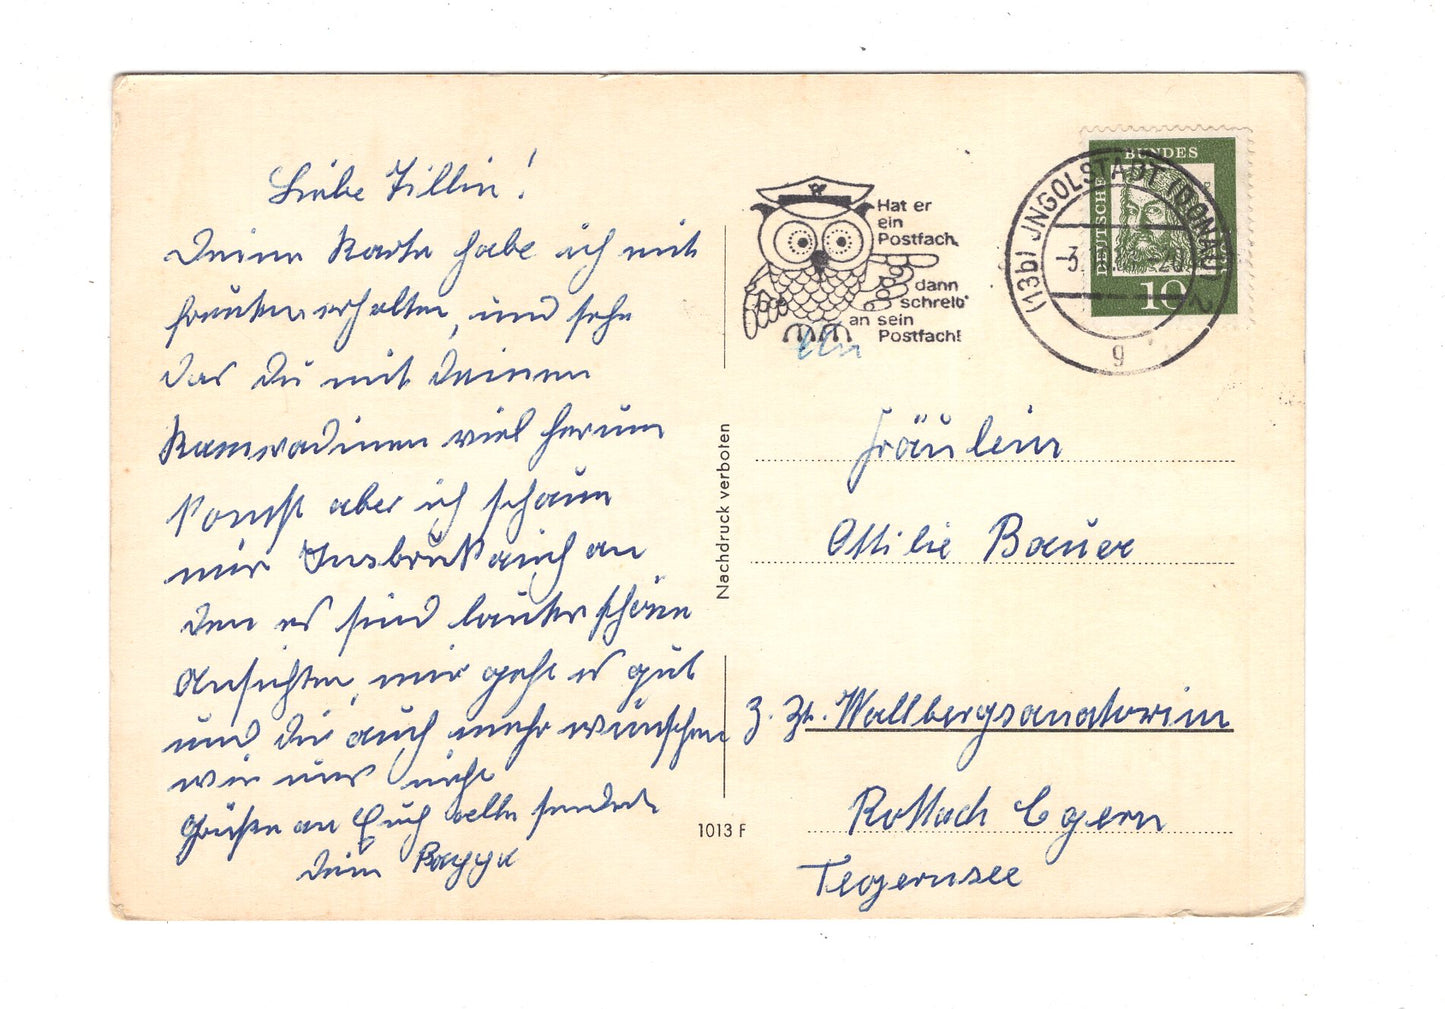 Liebe Tillin!
Deine Karte habe ich mit
freuden erhalten, und sehe
das du mit deinen
Kamradinen viel herum
komst aber ich schaue
mir Insbruk auch an
den es sind lauter schöne
Ansichten, mir geht es gut
und dir auch mehr wünschen
wir uns nicht
Grüße an Euch alle sendet
dein
Hat er
ein
Postfach,
dann
schreib'
an sein
Postfach!
(13b) INGOLSTADT (DONAU) 2
g
DEUTSCHE BUNDES
10
Fräulein
Ottilie Bauer
z. Zt. Wallbergsanatorium
Rottach Egern
Tegernsee
Nachdruck verboten
1013 F